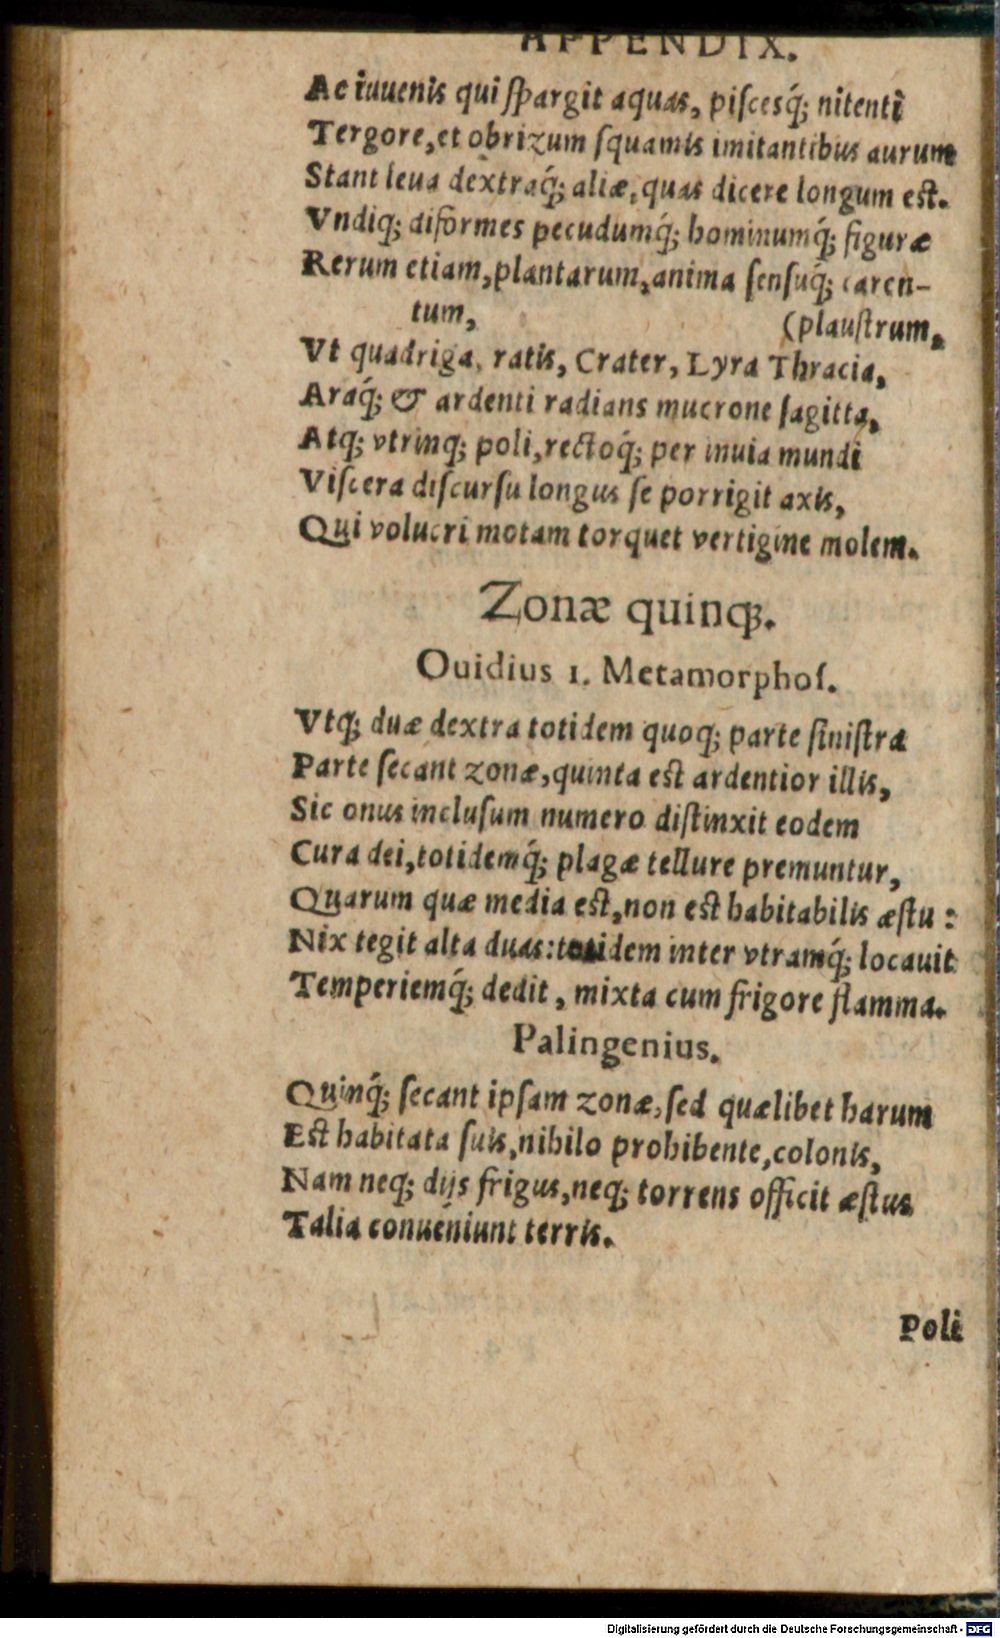 APPENDIX.
Ac iuuenis qui ſpargit aquas, piſcesq́; nitenti
Tergore, et obrizum ſquamis imitantibus aurum
Stant leua dextraq́; aliæ, quas dicere longum eſt.
Vndiq; diformes pecudumq́; hominumq́; figuræ
Rerum etiam, plantarum, anima ſenſuq́; caren-
tum, (plauſtrum,
Vt quadriga, ratis, Crater, Lyra Thracia,
Araq́; & ardenti radians mucrone ſagitta,
Atq; vtrinq; poli, rectoq́; per inuia mundi
Viſcera diſcurſu longus ſe porrigit axis,
Qui volucri motam torquet vertigine molem.
Zonæ quinq;.
Ouidius 1. Metamorphoſ.
Vtq; duæ dextra totidem quoq; parte ſiniſtra
Parte ſecant zonæ, quinta eſt ardentior illis,
Sic onus incluſum numero diſtinxit eodem
Cura dei, totidemq́; plagæ tellure premuntur,
Quarum quæ media eſt, non eſt habitabilis æſtu:
Nix tegit alta duas: totidem inter vtramq́; locauit
Temperiemq́; dedit, mixta cum frigore flamma.
Palingenius.
Quinq́; ſecant ipſam zonæ, ſed quælibet harum
Eſt habitata ſuis, nihilo prohibente, colonis,
Nam neq; dijs frigus, neq; torrens officit æſtus
Talia conueniunt terris.
Poli
Digitalisierung gefördert durch die Deutsche Forschungsgemeinschaft - DFG